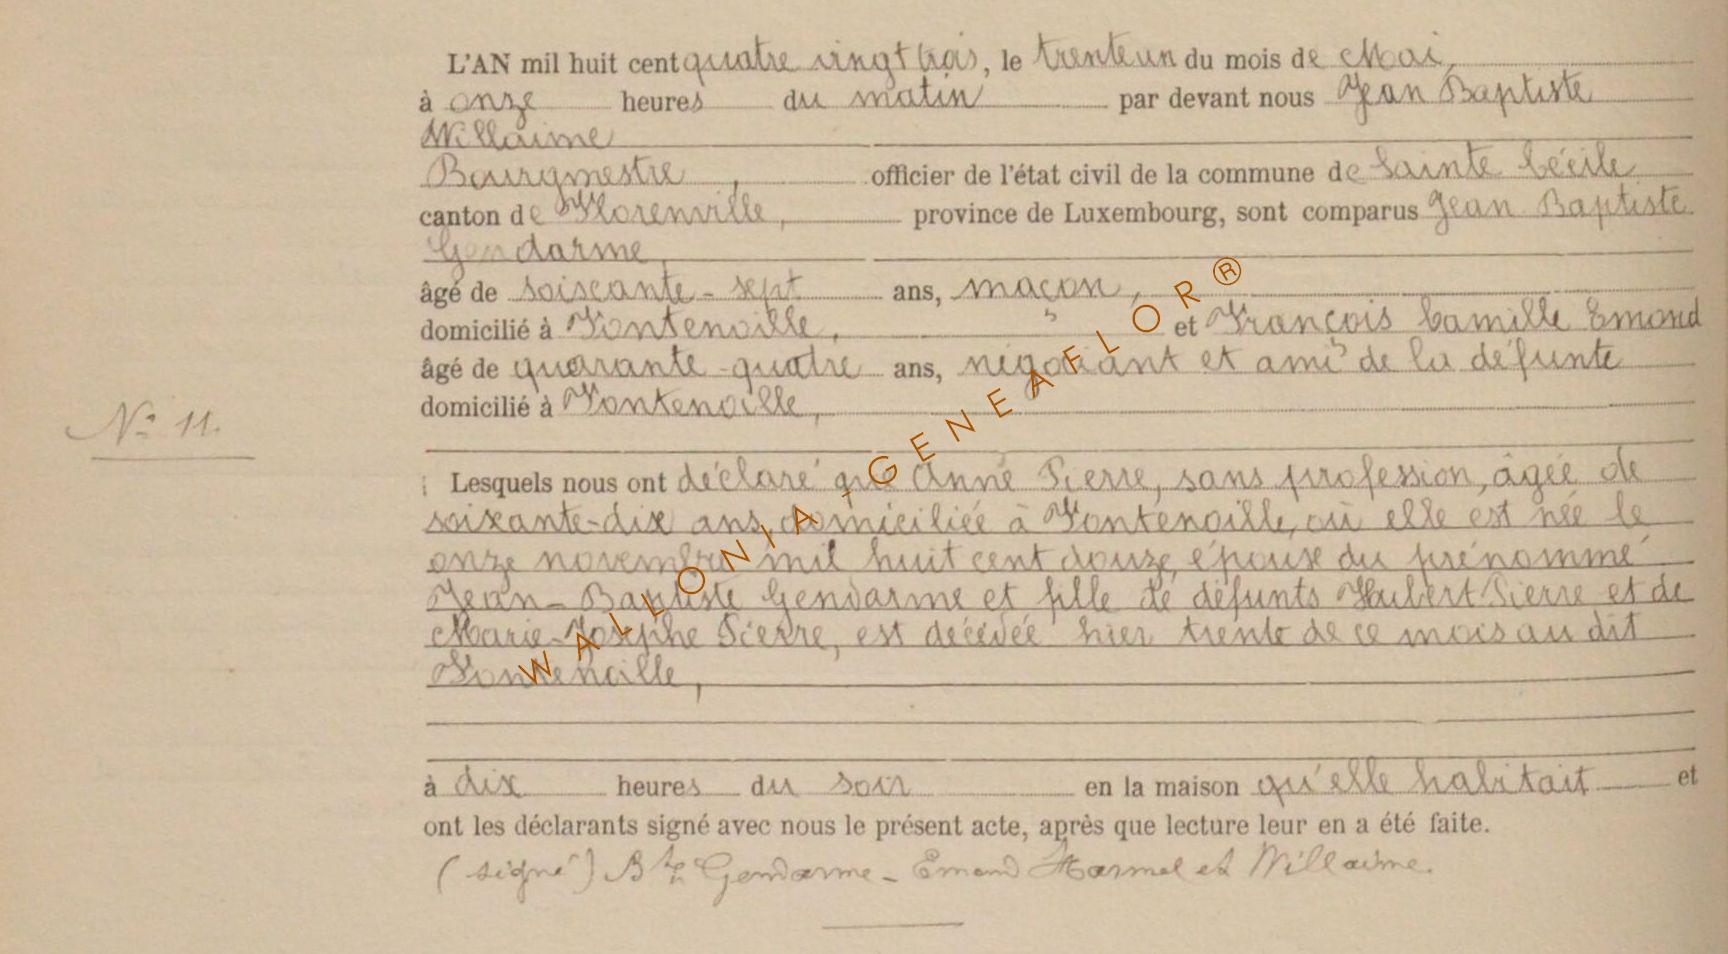 L'AN mil huit cent quatre vingt trois, le trente un du mois de Mai,
à onze heures du matin par devant nous Jean Baptiste
Willaime
Bourgmestre, officier de l'état civil de la commune de Sainte Cécile
canton de Florenville, province de Luxembourg, sont comparus Jean Baptiste
Gendarme,
âgé de soixante-sept ans, maçon,
domicilié à Fontenoille, et François Camille Emond
âgé de quarante-quatre ans, négociant et ami de la défunte
domicilié à Fontenoille,
No 11.
Lesquels nous ont déclaré que Anne Pierre, sans profession, âgée de
soixante-dix ans, domiciliée à Fontenoille, où elle est née le
onze novembre mil huit cent douze, épouse du prénommé
Jean-Baptiste Gendarme et fille de défunts Hubert Pierre et de
Marie-Josephe Pierre, est décédée hier trente de ce mois au dit
Fontenoille,
à dix heures du soir en la maison qu'elle habitait et
ont les déclarants signé avec nous le présent acte, après que lecture leur en a été faite.
(signé) Bte Gendarme - Emond Harmel et Willaime.
WALLONIA-GENEAFLOR®